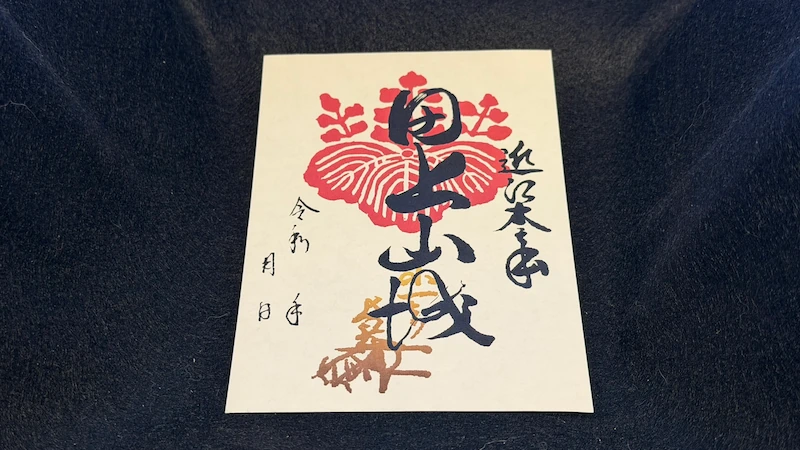 近江木之本
田上山城
令和 年
月 日